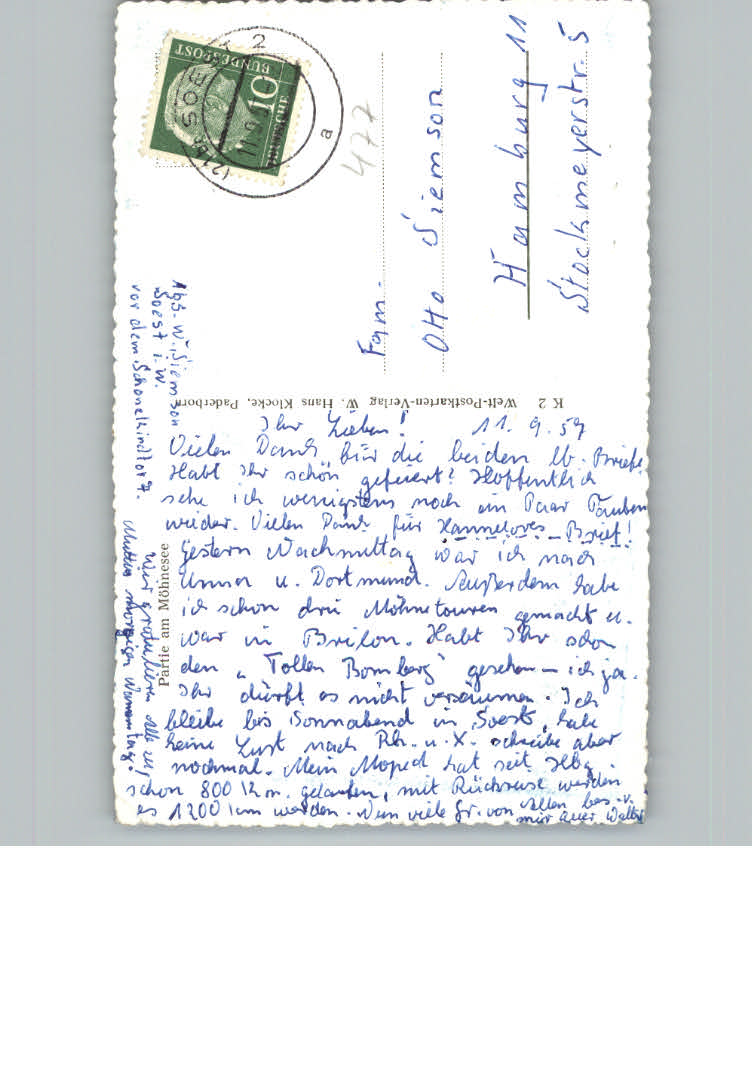 Ihr Lieben! 11.9.57
Vielen Dank für die beiden lb. Briefe.
Habt Ihr schön gefeiert? Hoffentlich
sehe ich wenigstens noch ein Paar Tauben
wieder. Vielen Dank für Hannelores Brief!
Gestern Nachmittag war ich nach
Unna u. Dortmund. Außerdem habe
ich schon drei Möhnetouren gemacht u.
war in Brilon. Habt Ihr schon
den "Tollen Bomberg" gesehen – ich ja.
Ihr dürft es nicht versäumen. Ich
bleibe bis Sonnabend in Soest, habe
keine Lust nach Rh. u. X. schreibe aber
nochmal. Mein Moped hat seit Hbg.
schon 800 km. gelaufen, mit Rückreise werden
es 1200 km werden. Nun viele Gr. von Allen bes. v.
mir Euer Walter
Wir gratulieren alle zu
Mutties morgigen Namenstag!
Partie am Möhnesee
K 2 Welt-Postkarten-Verlag W. Hans Klocke, Paderborn
Abs. W. Siemson
Soest i. W.
vor dem
Fam.
Otto Siemson
Hamburg 11
Stockmeyerstr. 5
477
DEUTSCHE
BUNDESPOST
10
(21b) SOEST 2
11.9.
a